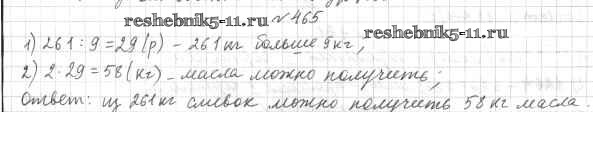 reshebnik5-11.ru №465
1) 261 : 9 = 29 (р) – 261 кг больше 9 кг,
reshebnik5-11.ru
2) 2 · 29 = 58 (кг) – масла можно получить;
Ответ: из 261 кг сливок можно получить 58 кг масла.